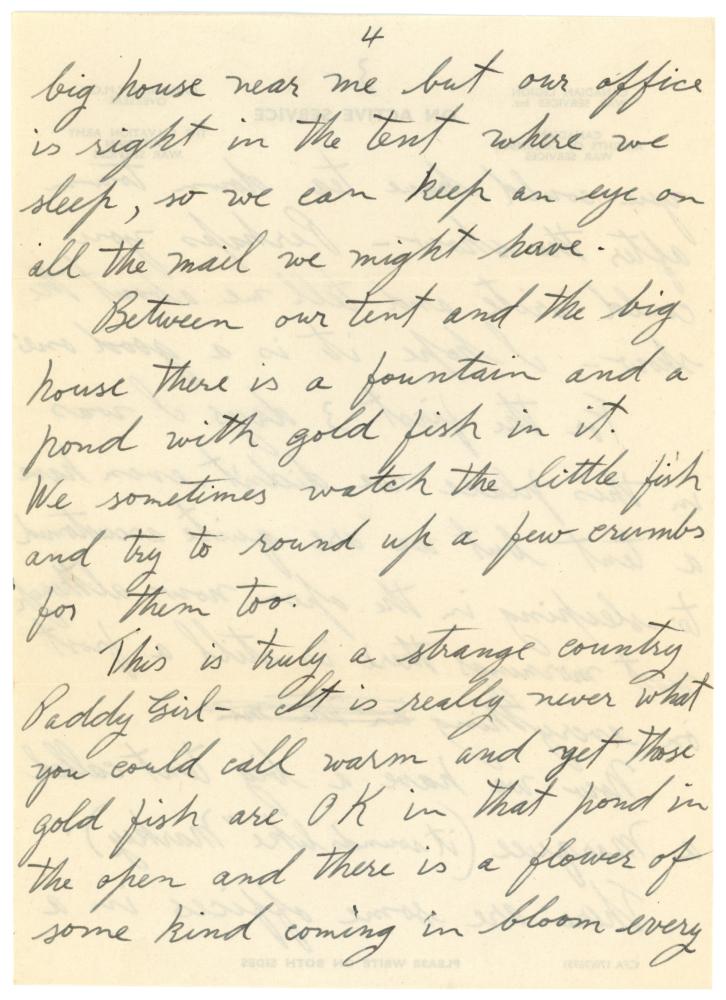 4
big house near me but our office
is right in the tent where we
sleep, so we can keep an eye on
all the mail we might have.
Between our tent and the big
house there is a fountain and a
pond with gold fish in it.
We sometimes watch the little fish
and try to round up a few crumbs
for them too.
This is truly a strange country
Paddy Girl - It is really never what
you could call warm and yet those
gold fish are OK in that pond in
the open and there is a flower of
some kind coming in bloom every